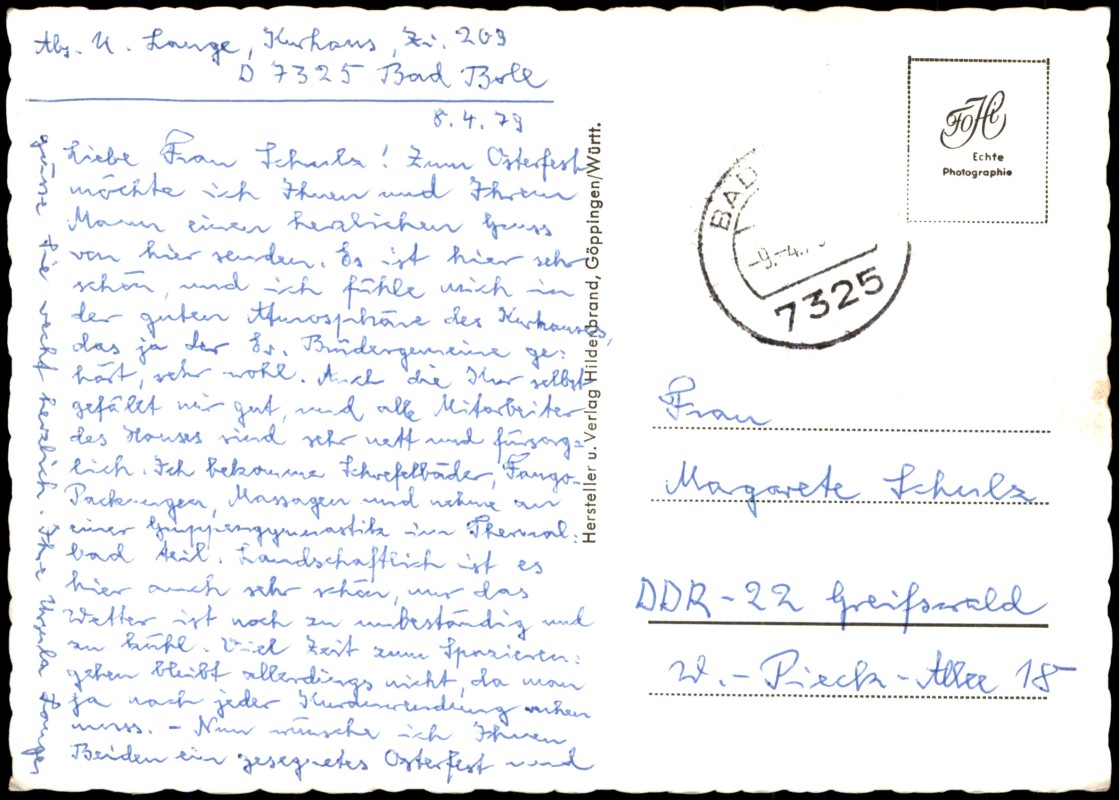 Abs. U. Lange, Kurhaus, Zi. 209
D 7325 Bad Boll
8.4.79
Liebe Frau Schulz! Zum Osterfest
möchte ich Ihnen und Ihrem
Mann einen herzlichen Gruss
von hier senden. Es ist hier sehr
schön, und ich fühle mich in
der guten Atmosphäre des Kurhauses,
das ja der Ev. Brüdergemeine ge-
hört, sehr wohl. Auch die Kur selbst
gefällt mir gut, und alle Mitarbeiter
des Hauses sind sehr nett und fürsorg-
lich. Ich bekomme Schwefelbäder, Fango-
Packungen, Massagen und nehme an
einer Gruppengymnastik im Thermal-
bad teil. Landschaftlich ist es
hier auch sehr schön, nur das
Wetter ist noch zu unbeständig und
zu kühl. Viel Zeit zum Spazieren-
gehen bleibt allerdings nicht, da man
ja nach jeder Kuranwendung ruhen
muss. - Nun wünsche ich Ihnen
Beiden ein gesegnetes Osterfest und
grüsse Sie recht herzlich. Ihre Ursula Lange
Hersteller u. Verlag Hildenbrand, Göppingen/Württ.
FoHi
Echte
Photographie
BAD
-9.-4.7
7325
Frau
Margarete Schulz
DDR-22 Greifswald
W.-Pieck-Allee 18